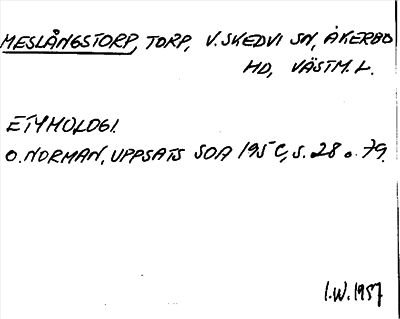 MESLÅNGSTORP, TORP, V. SKEDVI SN, ÅKERBO
HD, VÄSTM. L.
ETYMOLOGI.
O. NORMAN, UPPSATS SOA 195C, S. 28 o. 79.
I.W. 1957